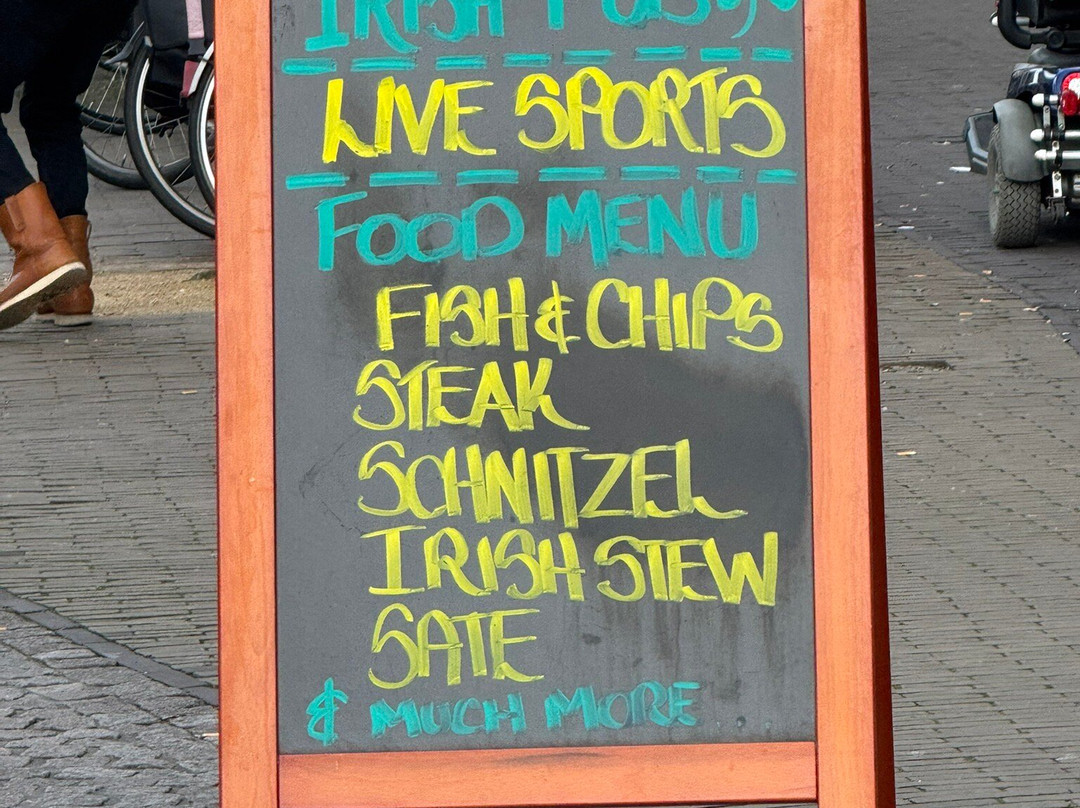 IRISH
LIVE SPORTS
FOOD MENU
FISH & CHIPS
STEAK
SCHNITZEL
IRISH STEW
SATE
& MUCH MORE